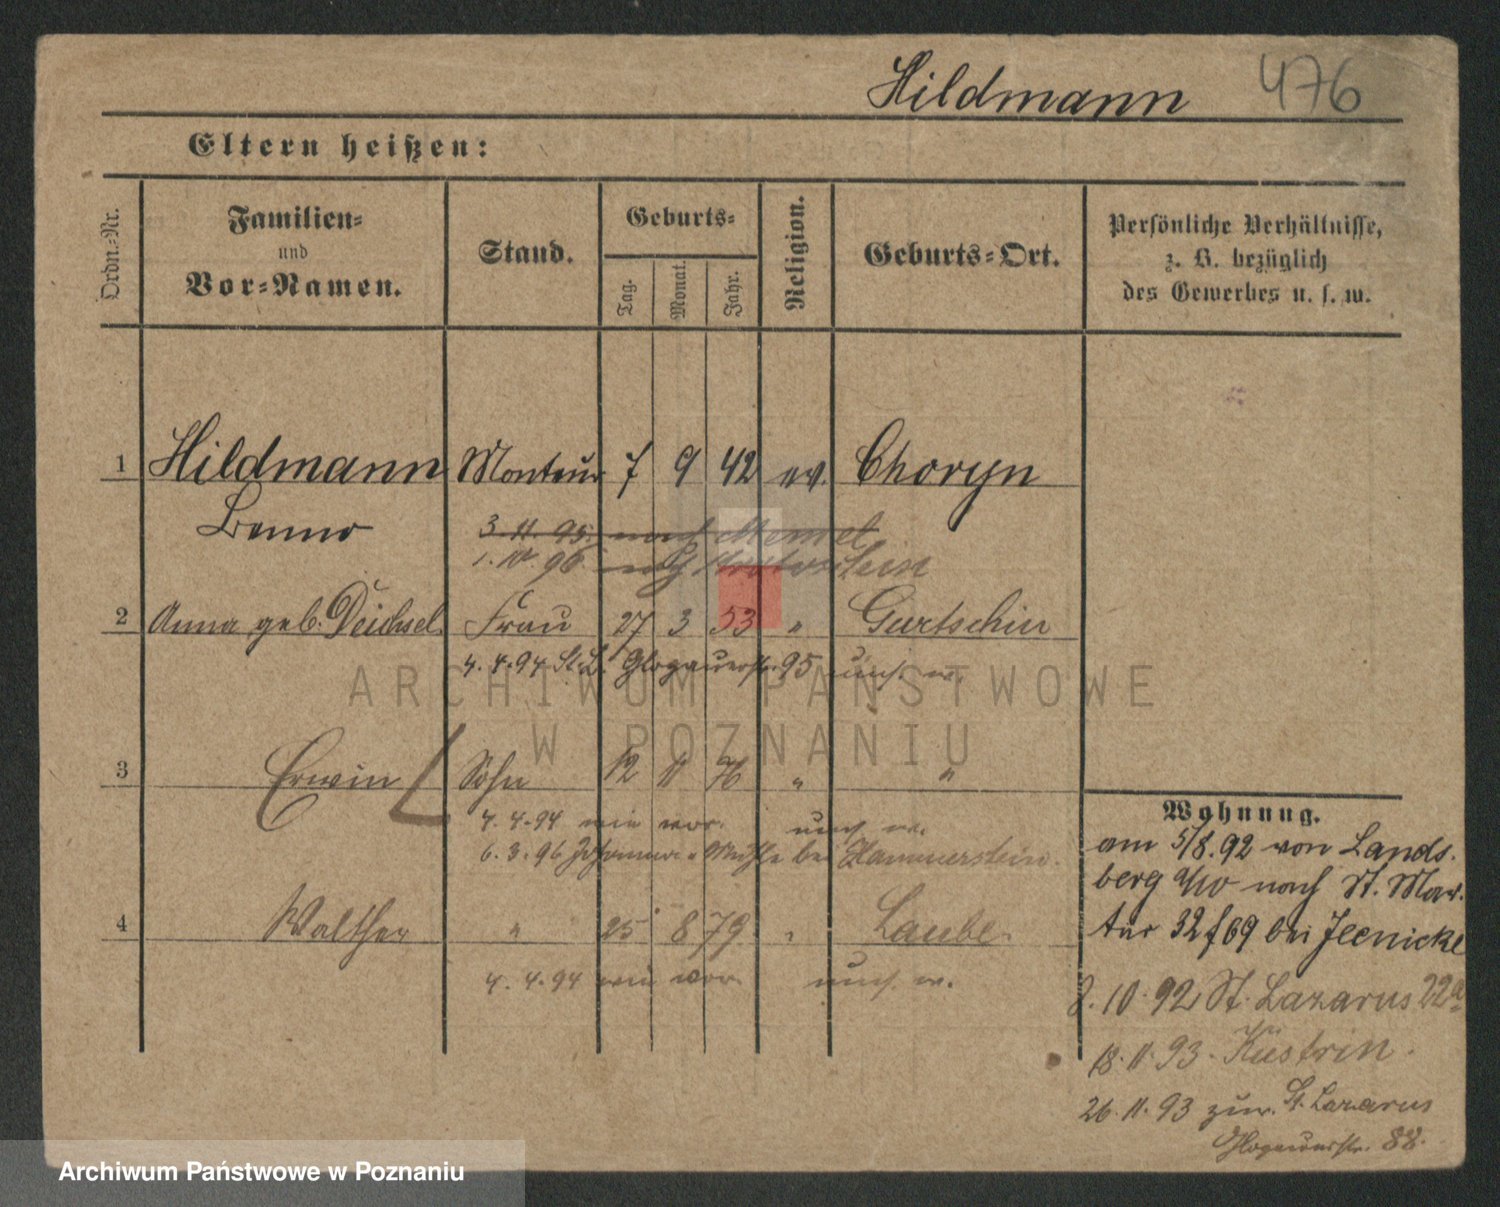 Hildmann 476
Eltern heißen:
Ordn.-Nr.
Familien-
und
Vor-Namen.
Stand.
Geburts-
Tag.
Monat.
Jahr.
Religion.
Geburts-Ort.
Persönliche Verhältnisse,
z. B. bezüglich
des Gewerbes u. s. w.
1 Hildmann Monteur 7 9 42 ev. Choryn
Benno 3.11.95. nach
1. 96 nach
2 Anna geb. Deichsel Frau 27 3 53 " Gurtschin
4.4.94 St. L. Glogauerstr. 95
3 Erwin Sohn 12 11 76 " "
4.4.94 wie vor.
6.3.96 Mühle bei Hammerstein.
4 Walther " 25 8 79 " Laube
4.4.94 wie vor.
Wohnung.
am 5/8.92 von Lands-
berg a/W nach St. Mar-
tin 32 f 69 bei Jeenicke
8.10.92 St. Lazarus 22a
18.11.93. Küstrin.
26.11.93 zur. St. Lazarus
Glogauerstr. 88.
ARCHIWUM PAŃSTWOWE
W POZNANIU
Archiwum Państwowe w Poznaniu